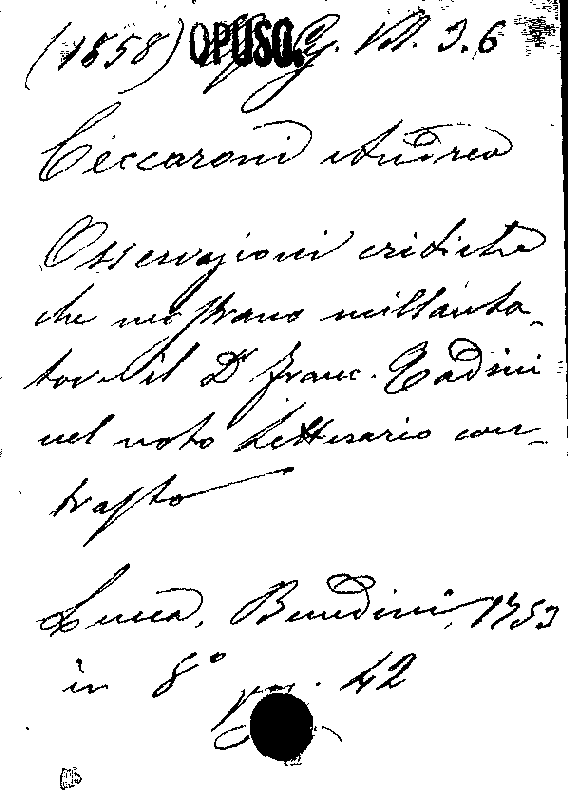 (1858) OPUSC. G. Vol. 3.6
Ceccaroni Andrea
Osservazioni critiche
che mostrano millanta-
tore il Dr Franc. Tadini
nel noto Letterario con-
trasto
Lucca, Benedini, 1753
in 8° pag. 42